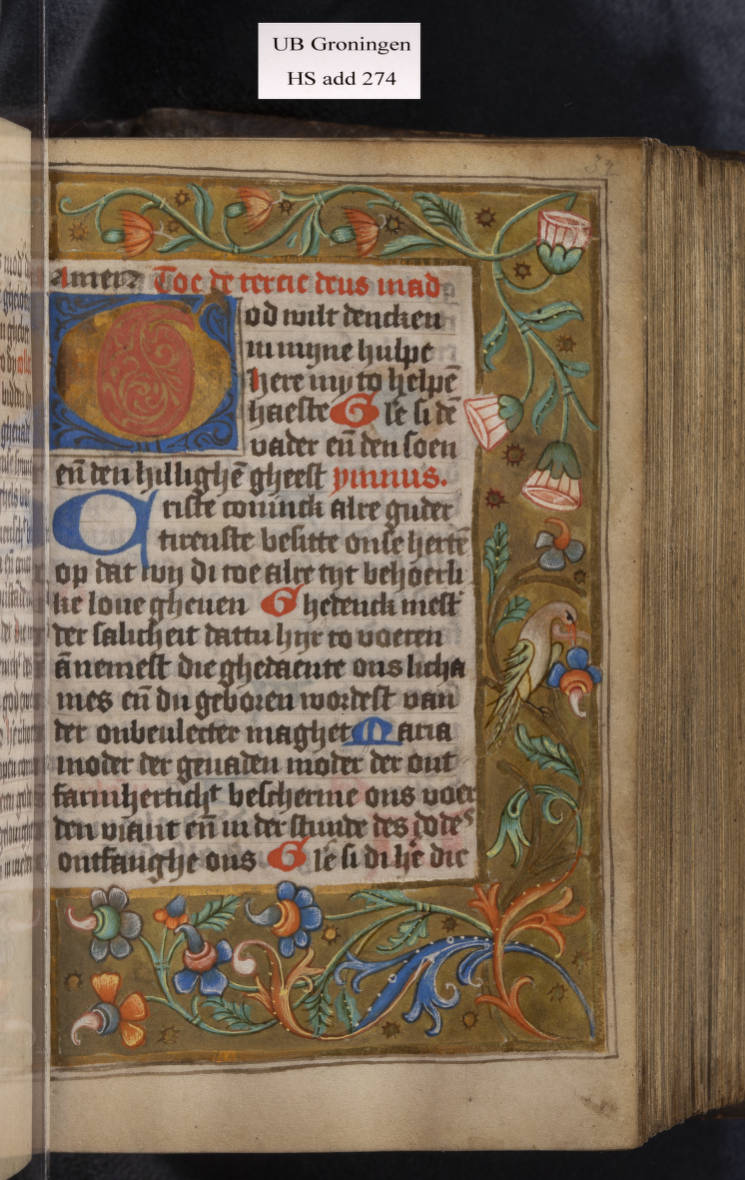 UB Groningen
HS add 274
32
Amen. Toe de tercie deus in ad
God wilt dencken
in myne hulpe
here my to helpē
haeste G le si dē
vader eñ den soen
eñ den hillighē gheest ymnus.
Criste coninck alre guder
tirenste besitte onse hertē
op dat wy di toe alre tyt behoerli
ke loue gheuen Ghedenck mest
der salicheit dattu hyr to voeren
ānemest die ghedaente ons licha
mes eñ du geboren wordest van
der onbeulecter maghet Maria
moder der genaden moder der ont
farmherticht bescherme ons voer
den viant eñ in der stunde des dodes
ontfanghe ons G le si di he die